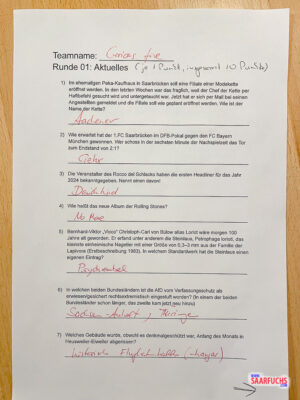 Teamname:
Runde 01: Aktuelles (je 1 Punkt, insgesamt 10 Punkte)
1) Im ehemaligen Peka-Kaufhaus in Saarbrücken soll eine Filiale einer Modekette
eröffnet werden. In den letzten Wochen war das fraglich, weil der Chef der Kette per
Haftbefehl gesucht wird und untergetaucht war. Jetzt hat er sich per Mail bei seinen
Angestellten gemeldet und die Filiale soll wie geplant eröffnet werden. Wie ist der
Name der Kette?
Aachener
2) Wie erwartet hat der 1.FC Saarbrücken im DFB-Pokal gegen den FC Bayern
München gewonnen. Wer schoss in der sechsten Minute der Nachspielzeit das Tor
zum Endstand von 2:1?
3) Die Veranstalter des Rocco del Schlacko haben die ersten Headliner für das Jahr
2024 bekanntgegeben. Nennt einen davon!
Deichkind
4) Wie heißt das neue Album der Rolling Stones?
5) Bernhard-Viktor „Vicco" Christoph-Carl von Bülow alias Loriot wäre morgen 100
Jahre alt geworden. Er erfand unter anderem die Steinlaus, Petrophaga lorioti, das
kleinste einheimische Nagetier mit einer Größe von 0,3–3 mm aus der Familie der
Lapivora (Erstbeschreibung 1983). In welchem Standardwerk hat die Steinlaus einen
eigenen Eintrag?
6) In welchen beiden Bundesländern ist die AfD vom Verfassungsschutz als
erwiesen/gesichert rechtsextremistisch eingestuft worden? (In einem der beiden
Bundesländer schon länger, das zweite kam jetzt neu hinzu)
Sachsen-Anhalt, Thüringen
7) Welches Gebäude wurde, obwohl es denkmalgeschützt war, Anfang des Monats in
Heusweiler-Eiweiler abgerissen?
SAARFUCHS